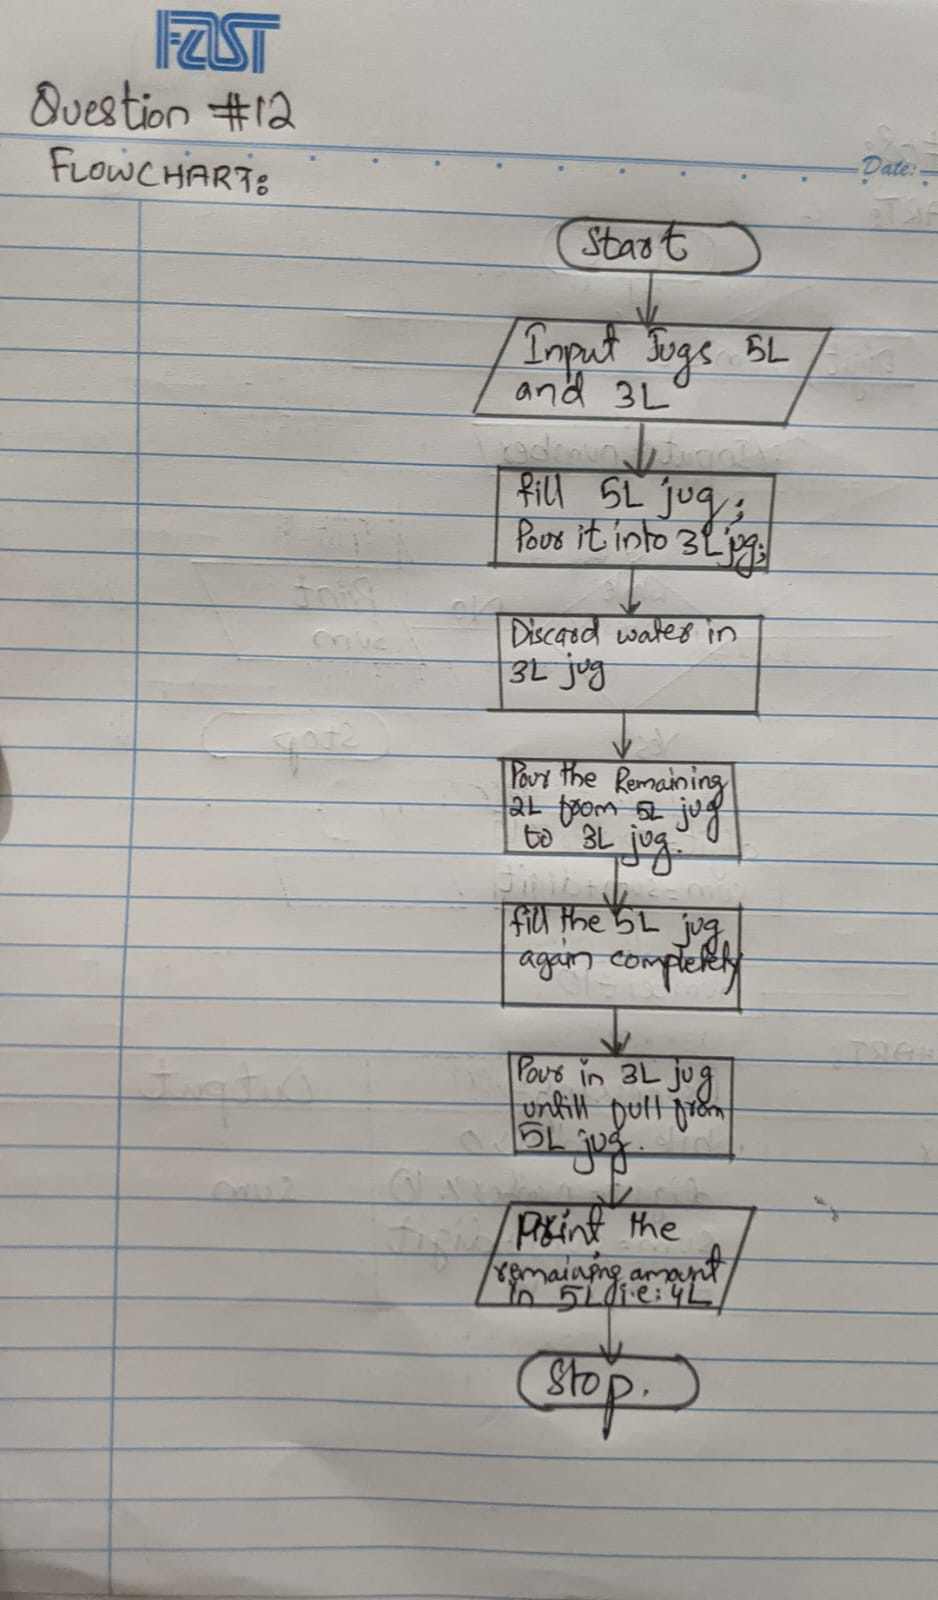 FAST
Question #12
FLOWCHART:
Date:
Start
Input Jugs 5L
and 3L
fill 5L jug;
Pour it into 3L jug;
Discard water in
3L jug
Pour the Remaining
2L from 5L jug
to 3L jug.
fill the 5L jug
again completely
Pour in 3L jug
untill full from
5L jug.
Print the
remaining amount
in 5L i.e: 4L
Stop.